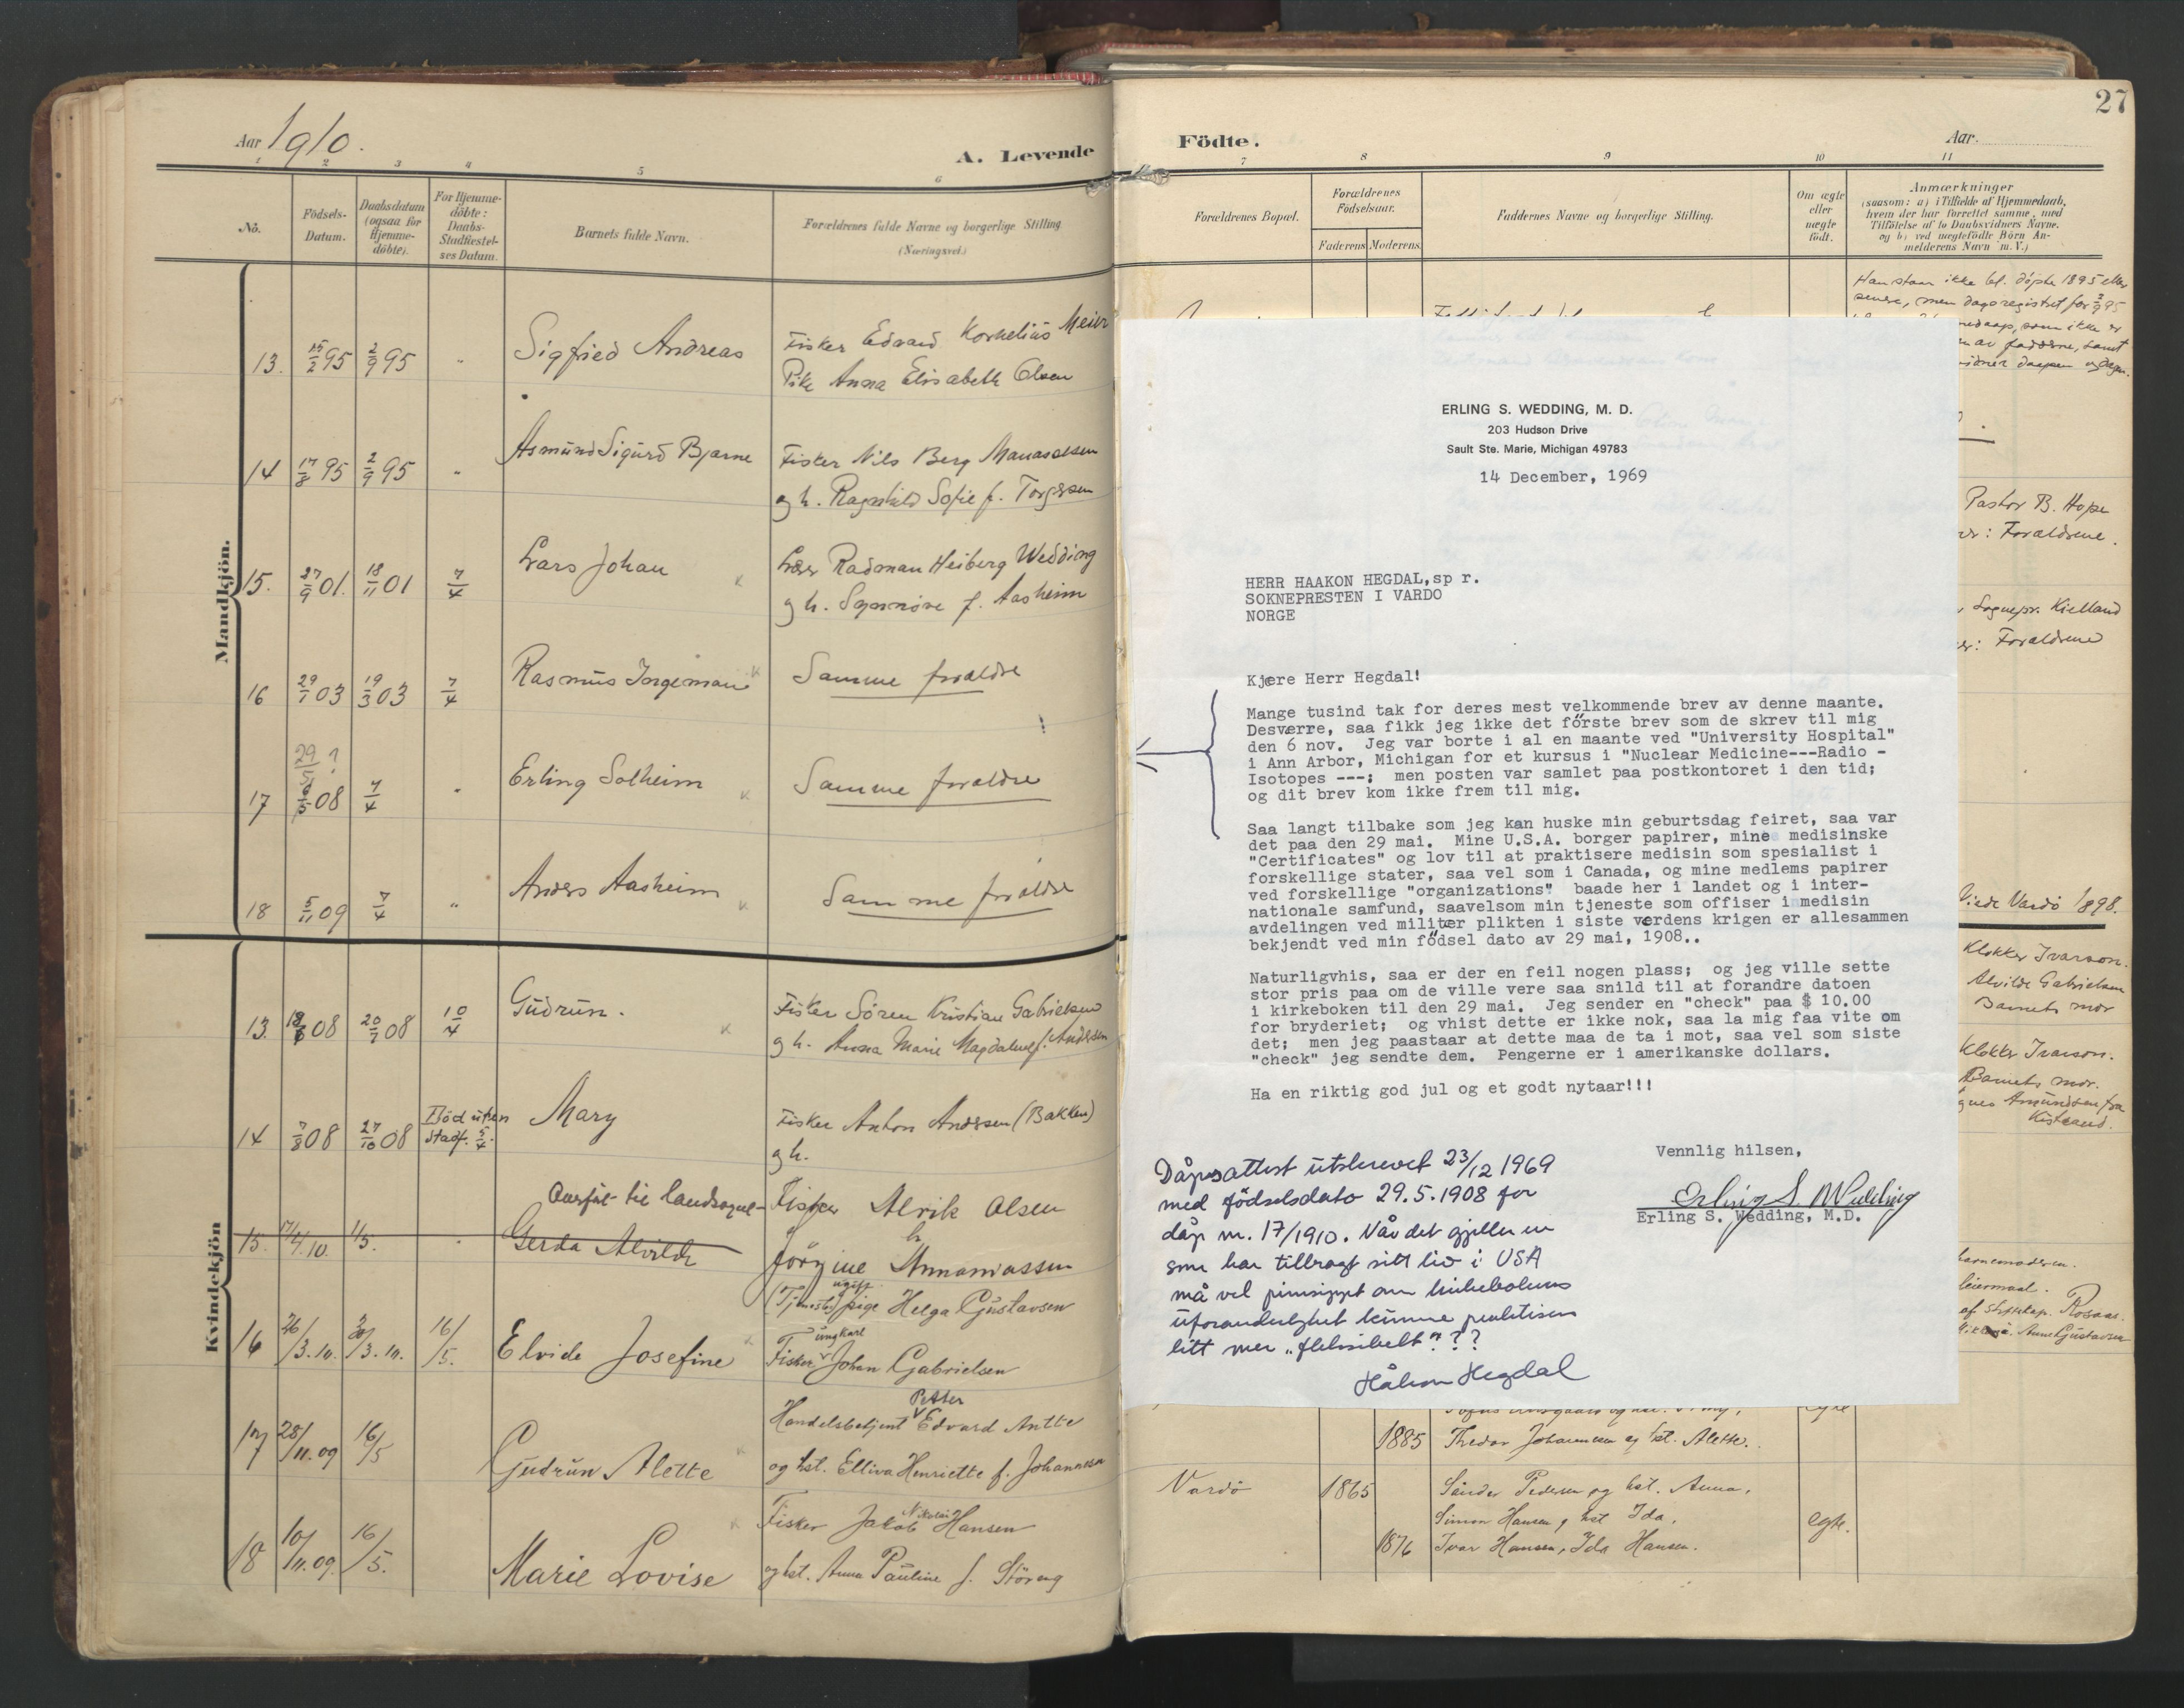 Aar 1910.
A. Levende
1 2 3 4 5 6
No.
Födsels-
Datum.
Daabsdatum
(ogsaa for
Hjemme-
döbte).
For Hjemme-
döbte:
Daabs-
Stadfæstel-
ses Datum.
Barnets fulde Navn.
Forældrenes fulde Navne og borgerlige Stilling
(Næringsvei.)
Mandkjön.
13. 15/2 95 2/9 95 " Sigfried Andreas Fisker Edvard Kornelius Meier
Pike Anna Elisabeth Olsen
14 17/8 95 2/9 95 " Asmund Sigurd Bjarne Fisker Nils Berg
og h. Ragnhild Sofie f. Torgersen
15. 27/9 01. 18/11 01 7/4 Lars Johan Radman Heiberg Wedding
og h. f. Aasheim
16 29/1 03 19/3 03 7/4 Rasmus Samme forældre
29/5 ?
17 5 08 7/4 " Erling Solheim Samme forældre
18 5/11 09 7/4 " Anders Aasheim Samme forældre
Kvindekjön
13. 08 20/7 08 10/4 Gudrun. Fisker Sören Kristian Gabrielsen
og h. Anna Marie Magdalene f. Andersen
14 7/8 08 27/10 08 Död uten
stadf. 5/4. Mary Fisker Anton Andersen (Bakken)
og h.
Overført til landsogn
15. 17/4.10. 1/5. " Gerda Alvilde Fisker Alrik Olsen
Jörgine Annaniassen
16 26/3.10. 16/5. Elvide Josefine (Tjeneste) ugift pige Helga Gustavsen
Fisker ungkarl Johan Gabrielsen
17 28/11.09 16/5 Gudrun Alette Handelsbetjent Petter Edvard Antte
og hst. Elliva Henriette f. Johannesen
18 10/11.09. 16/5. Marie Lovise Fisker Jakob Nikolai Hansen
og hst. Anna Pauline f. Störeng
27
Födte.
Aar.
7 8 9 10 11
Forældrenes Bopæl.
Forældrenes
Födselsaar.
Faderens Moderens.
Faddernes Navne og borgerlige Stilling.
Om ægte
eller
uægte
födt.
Anmærkninger
(saasom: a) i Tilfælde af Hjemmedaab,
hvem der har forrettet samme, med
Tilföielse af to Daabsvidners Navne.
og b) ved uægtefödte Börn An-
melderens Navn m. V.)
Han staar ikke bl. döpte 1895 eller
senere, men dagsregistret for 2/9 95
nedaap, som ikke er
av fadderne, samt
vidner daapen og dagen.
Pastor B. Hope
: Forældrene.
Sognepr. Kielland
: Forældrene
Vardö 1898.
Klokker Ivarson.
Alvilde Gabrielsen
Barnets mor
Klokker Ivarson.
Barnets mor.
Amundsen fra
Kistrand.
barnemoderen.
leiermaal.
af Stiftskap. Rosaas.
Anne Gustavsen
ERLING S. WEDDING, M. D.
203 Hudson Drive
Sault Ste. Marie, Michigan 49783
14 December, 1969
HERR HAAKON HEGDAL,sp r.
SOKNEPRESTEN I VARDO
NORGE
Kjære Herr Hegdal!
Mange tusind tak for deres mest velkommende brev av denne maante.
Desværre, saa fikk jeg ikke det förste brev som de skrev til mig
den 6 nov. Jeg var borte i al en maante ved "University Hospital"
i Ann Arbor, Michigan for et kursus i "Nuclear Medicine---Radio -
Isotopes ---; men posten var samlet paa postkontoret i den tid;
og dit brev kom ikke frem til mig.
Saa langt tilbake som jeg kan huske min geburtsdag feiret, saa var
det paa den 29 mai. Mine U.S.A. borger papirer, mine medisinske
"Certificates" og lov til at praktisere medisin som spesialist i
forskellige stater, saa vel som i Canada, og mine medlems papirer
ved forskellige "organizations" baade her i landet og i inter-
nationale samfund, saavelsom min tjeneste som offiser i medisin
avdelingen ved militær plikten i siste verdens krigen er allesammen
bekjendt ved min födsel dato av 29 mai, 1908..
Naturligvhis, saa er der en feil nogen plass; og jeg ville sette
stor pris paa om de ville vere saa snild til at forandre datoen
i kirkeboken til den 29 mai. Jeg sender en "check" paa $ 10.00
for bryderiet; og vhist dette er ikke nok, saa la mig faa vite om
det; men jeg paastaar at dette maa de ta i mot, saa vel som siste
"check" jeg sendte dem. Pengerne er i amerikanske dollars.
Ha en riktig god jul og et godt nytaar!!!
Vennlig hilsen,
Erling S. Wedding
Erling S. Wedding, M.D.
Dåpsattest utskrevet 23/12 1969
med födselsdato 29.5.1908 for
dåp nr. 17/1910. Når det gjelder en
som har tillbragt sitt liv i USA
må vel prinsippet om kirkebokens
uforanderlighet kunne praktiseres
litt mer „fleksibelt"???
Håkon Hegdal
1885 Thedor Johannesen og hst. Alette.
Vardö 1865 Sander Pedersen og hst. Anna.
Simon Hansen og hst Ida. egte.
1876 Ivar Hansen, Ida Hansen.